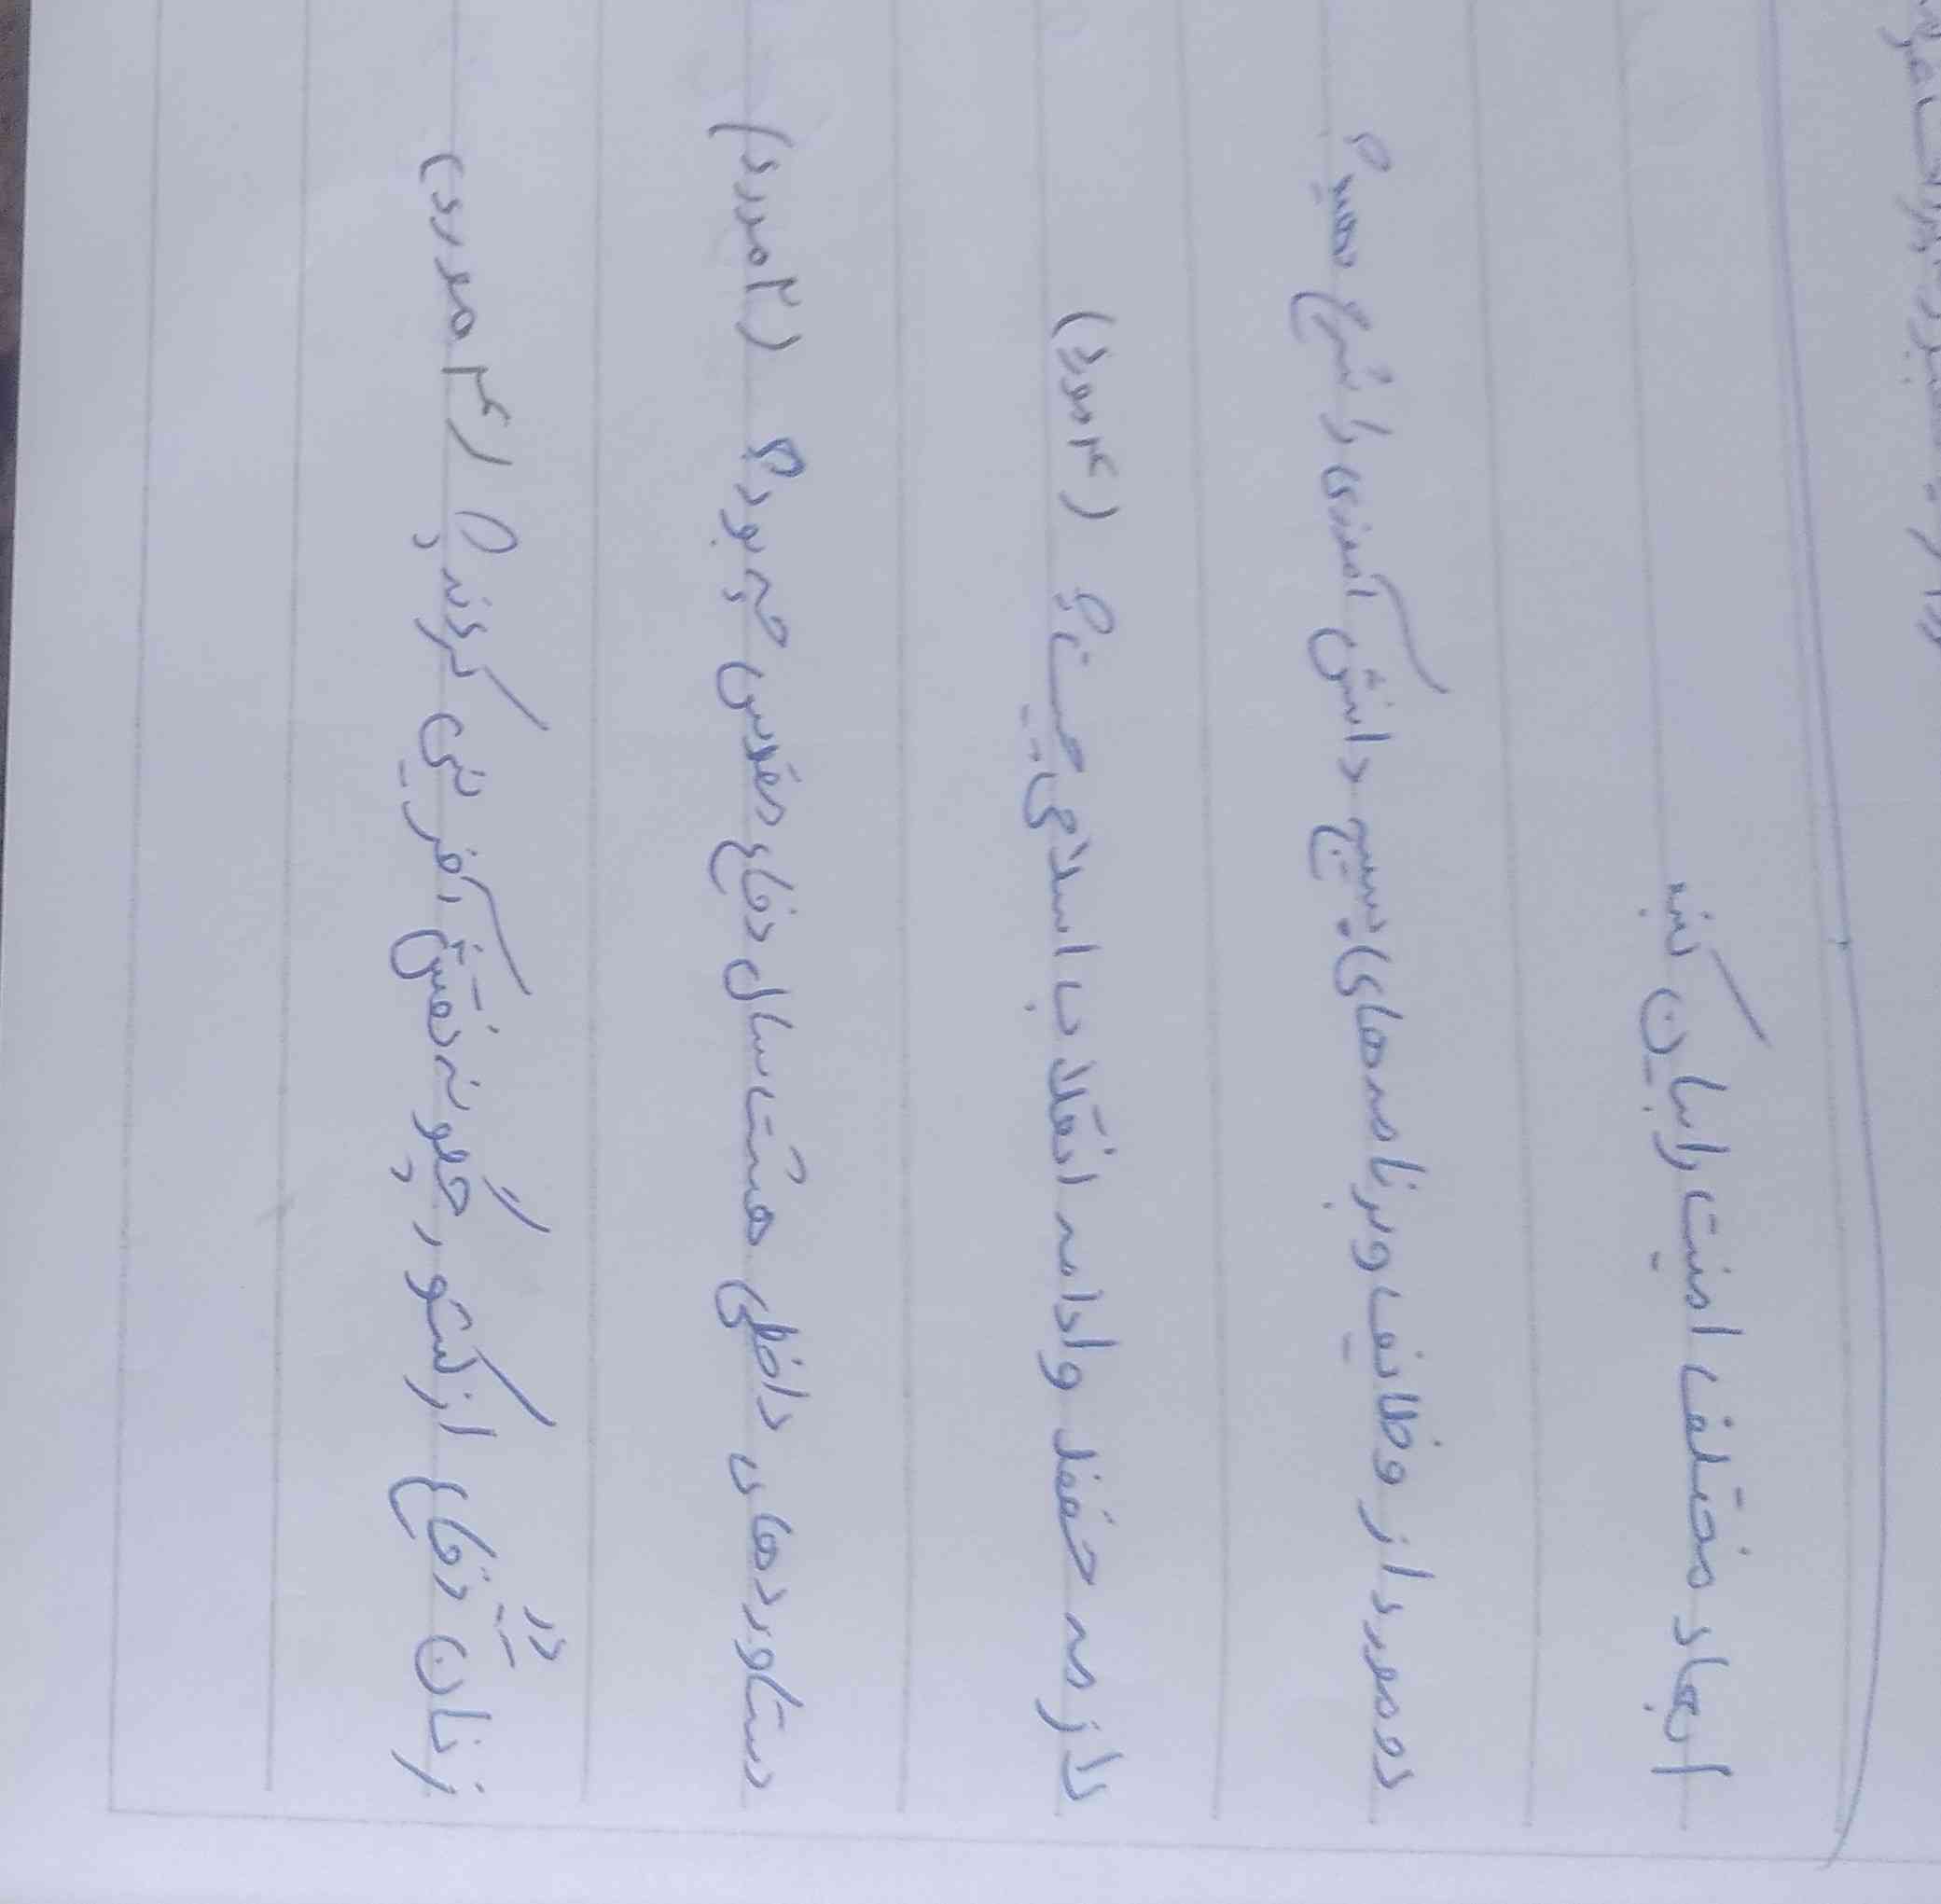 ابعاد مختلف امنیت را بیان کنید
دو مورد از وظایف و برنامه های بسیج دانش آموزی را شرح دهید؟
لازمه حفظ و ادامه انقلاب اسلامی چیست؟ (۴ مورد)
دستاوردهای داخلی هشت سال دفاع مقدس چه بود؟ (۲ مورد)
زنان در دفاع از کشور چگونه نقش آفرینی کردند؟ (۴ مورد)